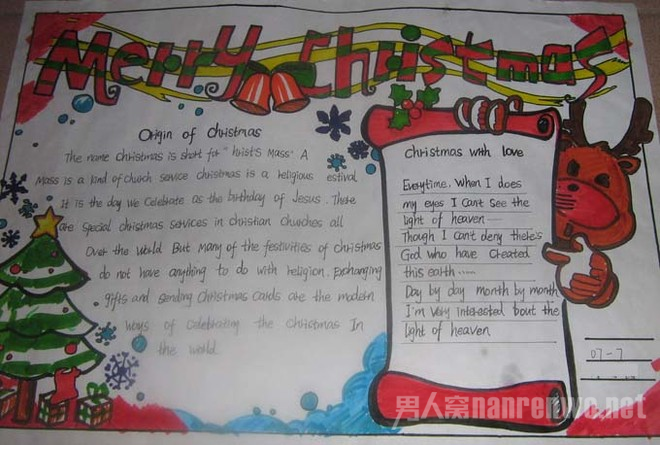 Merry Christmas
Origin of Christmas
The name christmas is short for "hrist's Mass" A
Mass is a kind of church service christmas is a religious estival
It is the day We Celebrate as the birthday of Jesus. There
are special christmas services in christian Churches all
Over the World But Many of the festivities of christmas
do not have anything to do with religion. Exchanging
gifts and sending Christmas Cards are the modern
Ways of Celebrating the Christmas In
the world
Christmas with love
Everytime, When I does
my eyes I Can't See the
light of heaven
Though I Can't deny there's
God who have Created
this earth ......
Day by day month by month
I'm Very interested 'bout the
light of heaven
07-7
男人窝nanrenwo.net